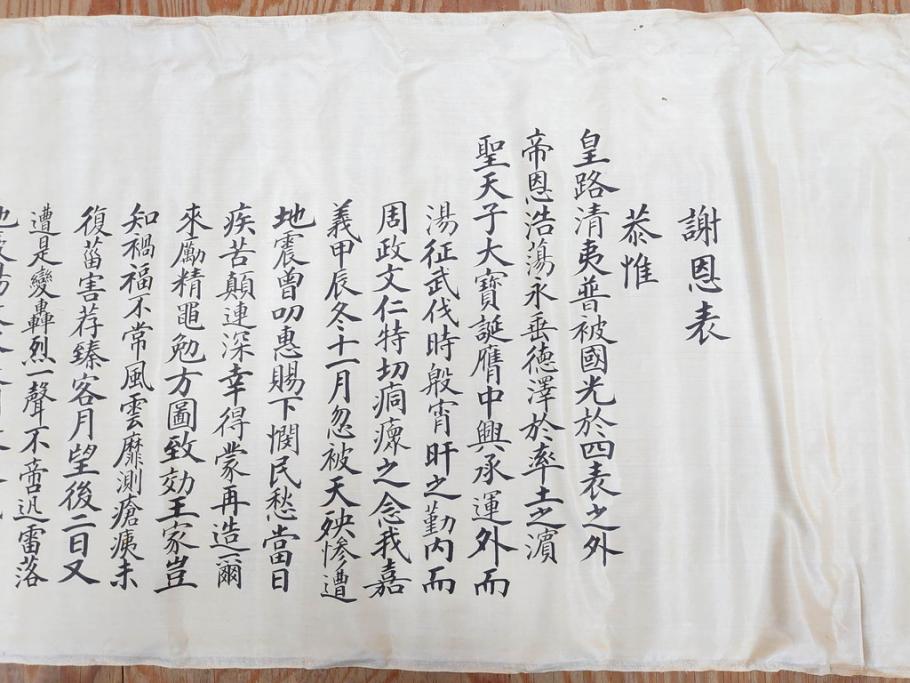 謝恩表
恭惟
皇路清夷普被國光於四表之外
帝恩浩蕩永垂德澤於率土之濵
聖天子大寶誕膺中興承運外而
湯征武伐時般宵旰之勤内而
周政文仁特切痌瘝之念我嘉
義甲辰冬十一月忽被天殃惨遭
地震曾叨惠賜下憫民愁當日
疾苦顛連深幸得蒙再造爾
來勵精黽勉方圖致効王家豈
知禍福不常風雲靡測瘡痍未
復菑害荐臻客月望後二日又
遭是變轟烈一聲不啻迅雷落